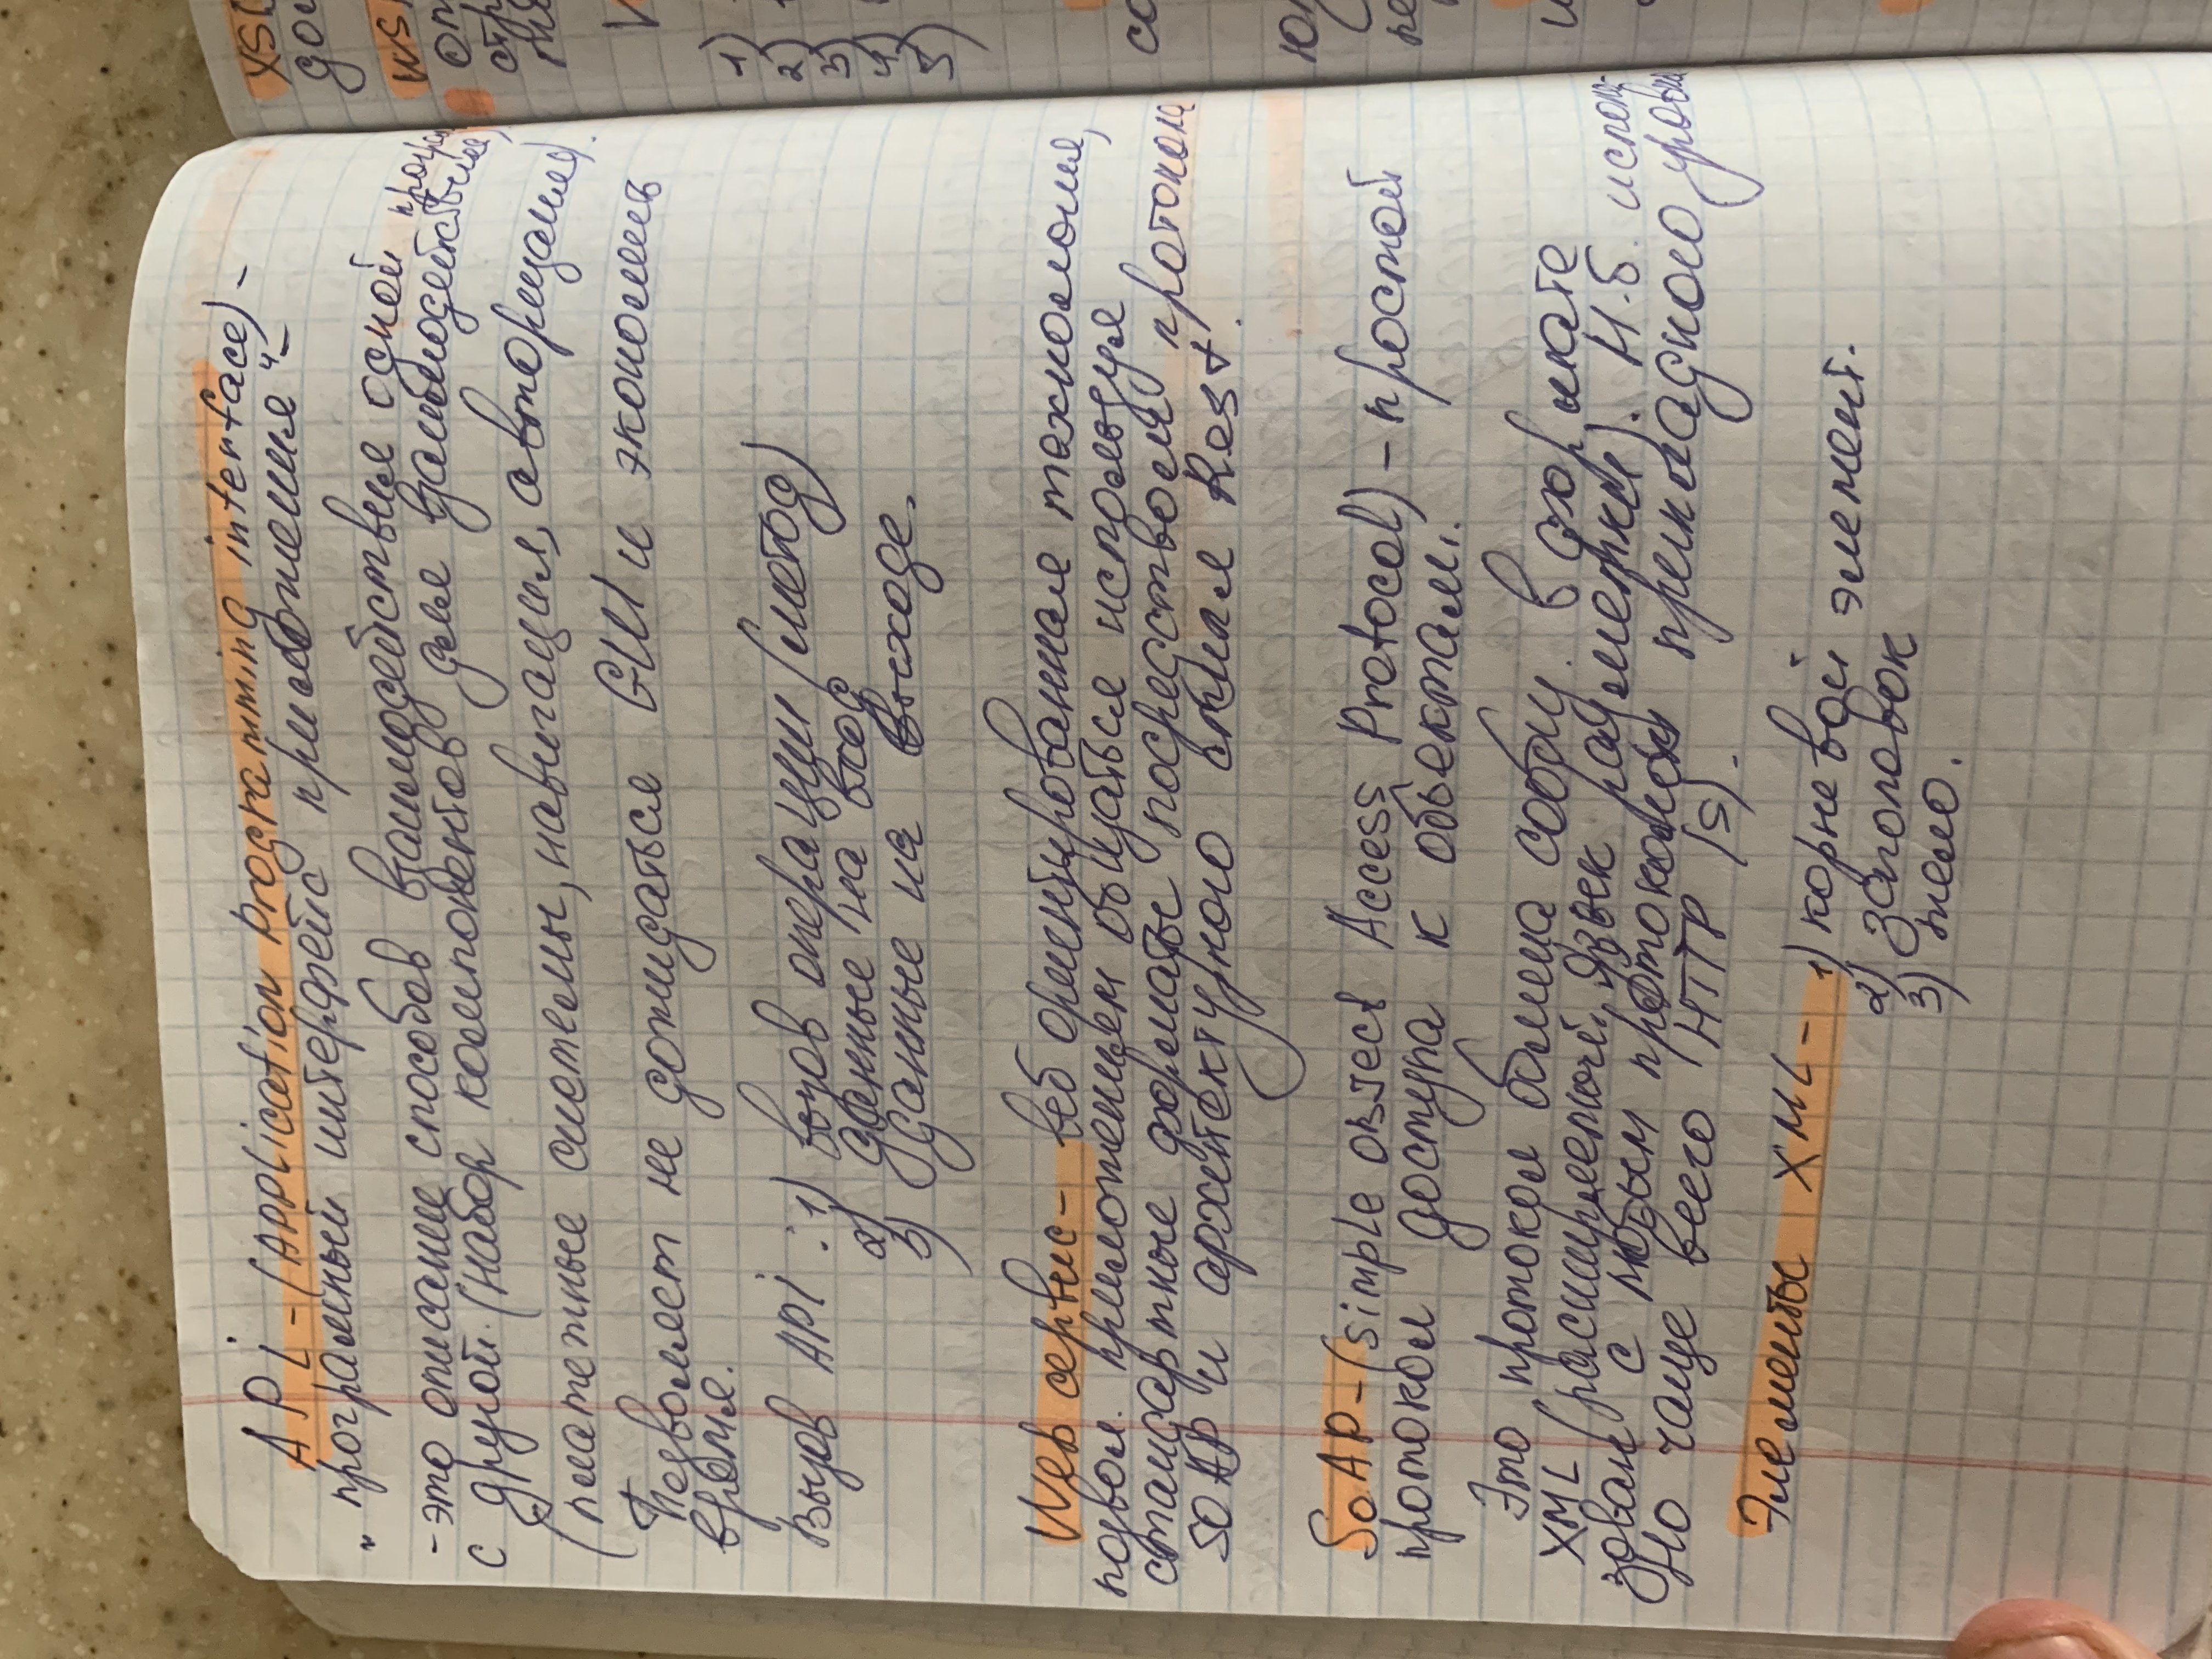 APi - (Application Programming interface) -
„програмный интерфейс приложения" -
- это описание способов взаимодействия одной програм
с другой. (набор компонентов для взаимодействия)
(платежные системы, навигация, авторизация).
Позволяет не дожидаться GUI и экономить
время.
Вызов APi : 1) вызов операции (метод)
2) данные на вход
3) данные на выходе.
Web сервис - веб ориентированная технология,
позвол. приложениям общаться используя
стандартные форматы посредством протокола
SOAP и архитектурного стиля Rest.
SoAP - (simple object Access Protocol) - простой
протокол доступа к объектам.
Это протокол обмена сообщ. в формате
XML (расширяемый язык разметки). М.б. исполь-
зован с любым протоколом прикладного уровня
Но чаще всего HTTP (s).
Элементы XML - 1) корневой элемент.
2) заголовок
3) тело.
XS
до
WS
оп
стр
1)
2)
3)
4)
5)
со
пе